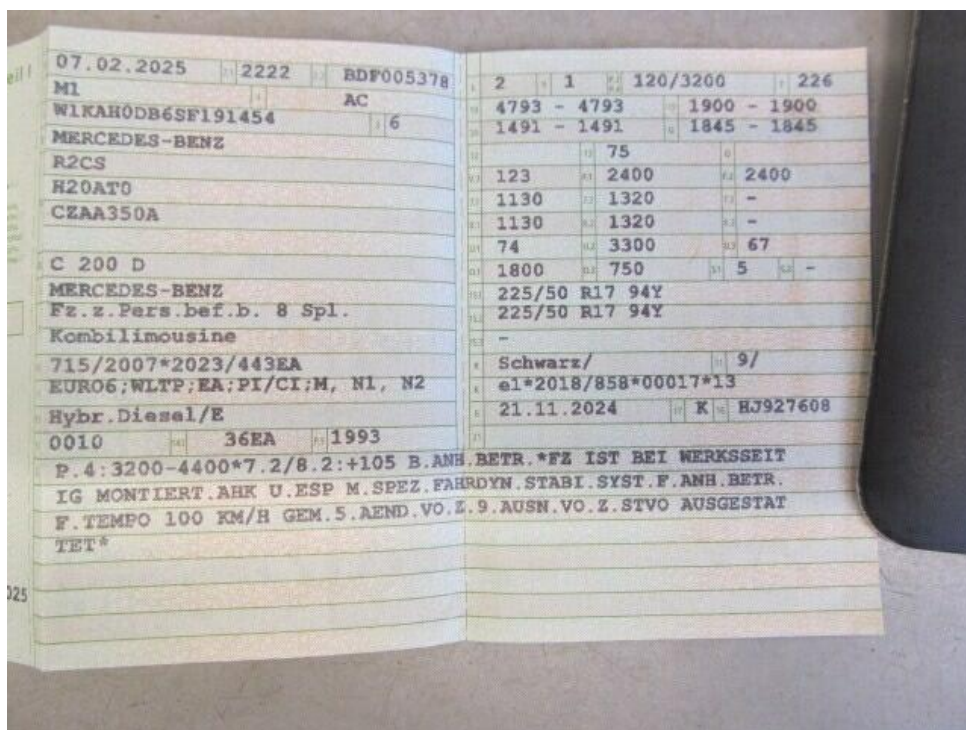 07.02.2025 2222 BDF005378
M1 AC
W1KAH0DB6SF191454 6
MERCEDES-BENZ
R2CS
H20AT0
CZAA350A
C 200 D
MERCEDES-BENZ
Fz.z.Pers.bef.b. 8 Spl.
Kombilimousine
715/2007*2023/443EA
EURO6;WLTP;EA;PI/CI;M, N1, N2
Hybr.Diesel/E
0010 36EA 1993
2 1 120/3200 226
4793 - 4793 1900 - 1900
1491 - 1491 1845 - 1845
75
123 2400 2400
1130 1320 -
1130 1320 -
74 3300 67
1800 750 5 -
225/50 R17 94Y
225/50 R17 94Y
-
Schwarz/ 9/
e1*2018/858*00017*13
21.11.2024 K HJ927608
P.4:3200-4400*7.2/8.2:+105 B.ANH.BETR.*FZ IST BEI WERKSSEIT
IG MONTIERT.AHK U.ESP M.SPEZ.FAHRDYN.STABI.SYST.F.ANH.BETR.
F.TEMPO 100 KM/H GEM.5.AEND.VO.Z.9.AUSN.VO.Z.STVO AUSGESTAT
TET*
025